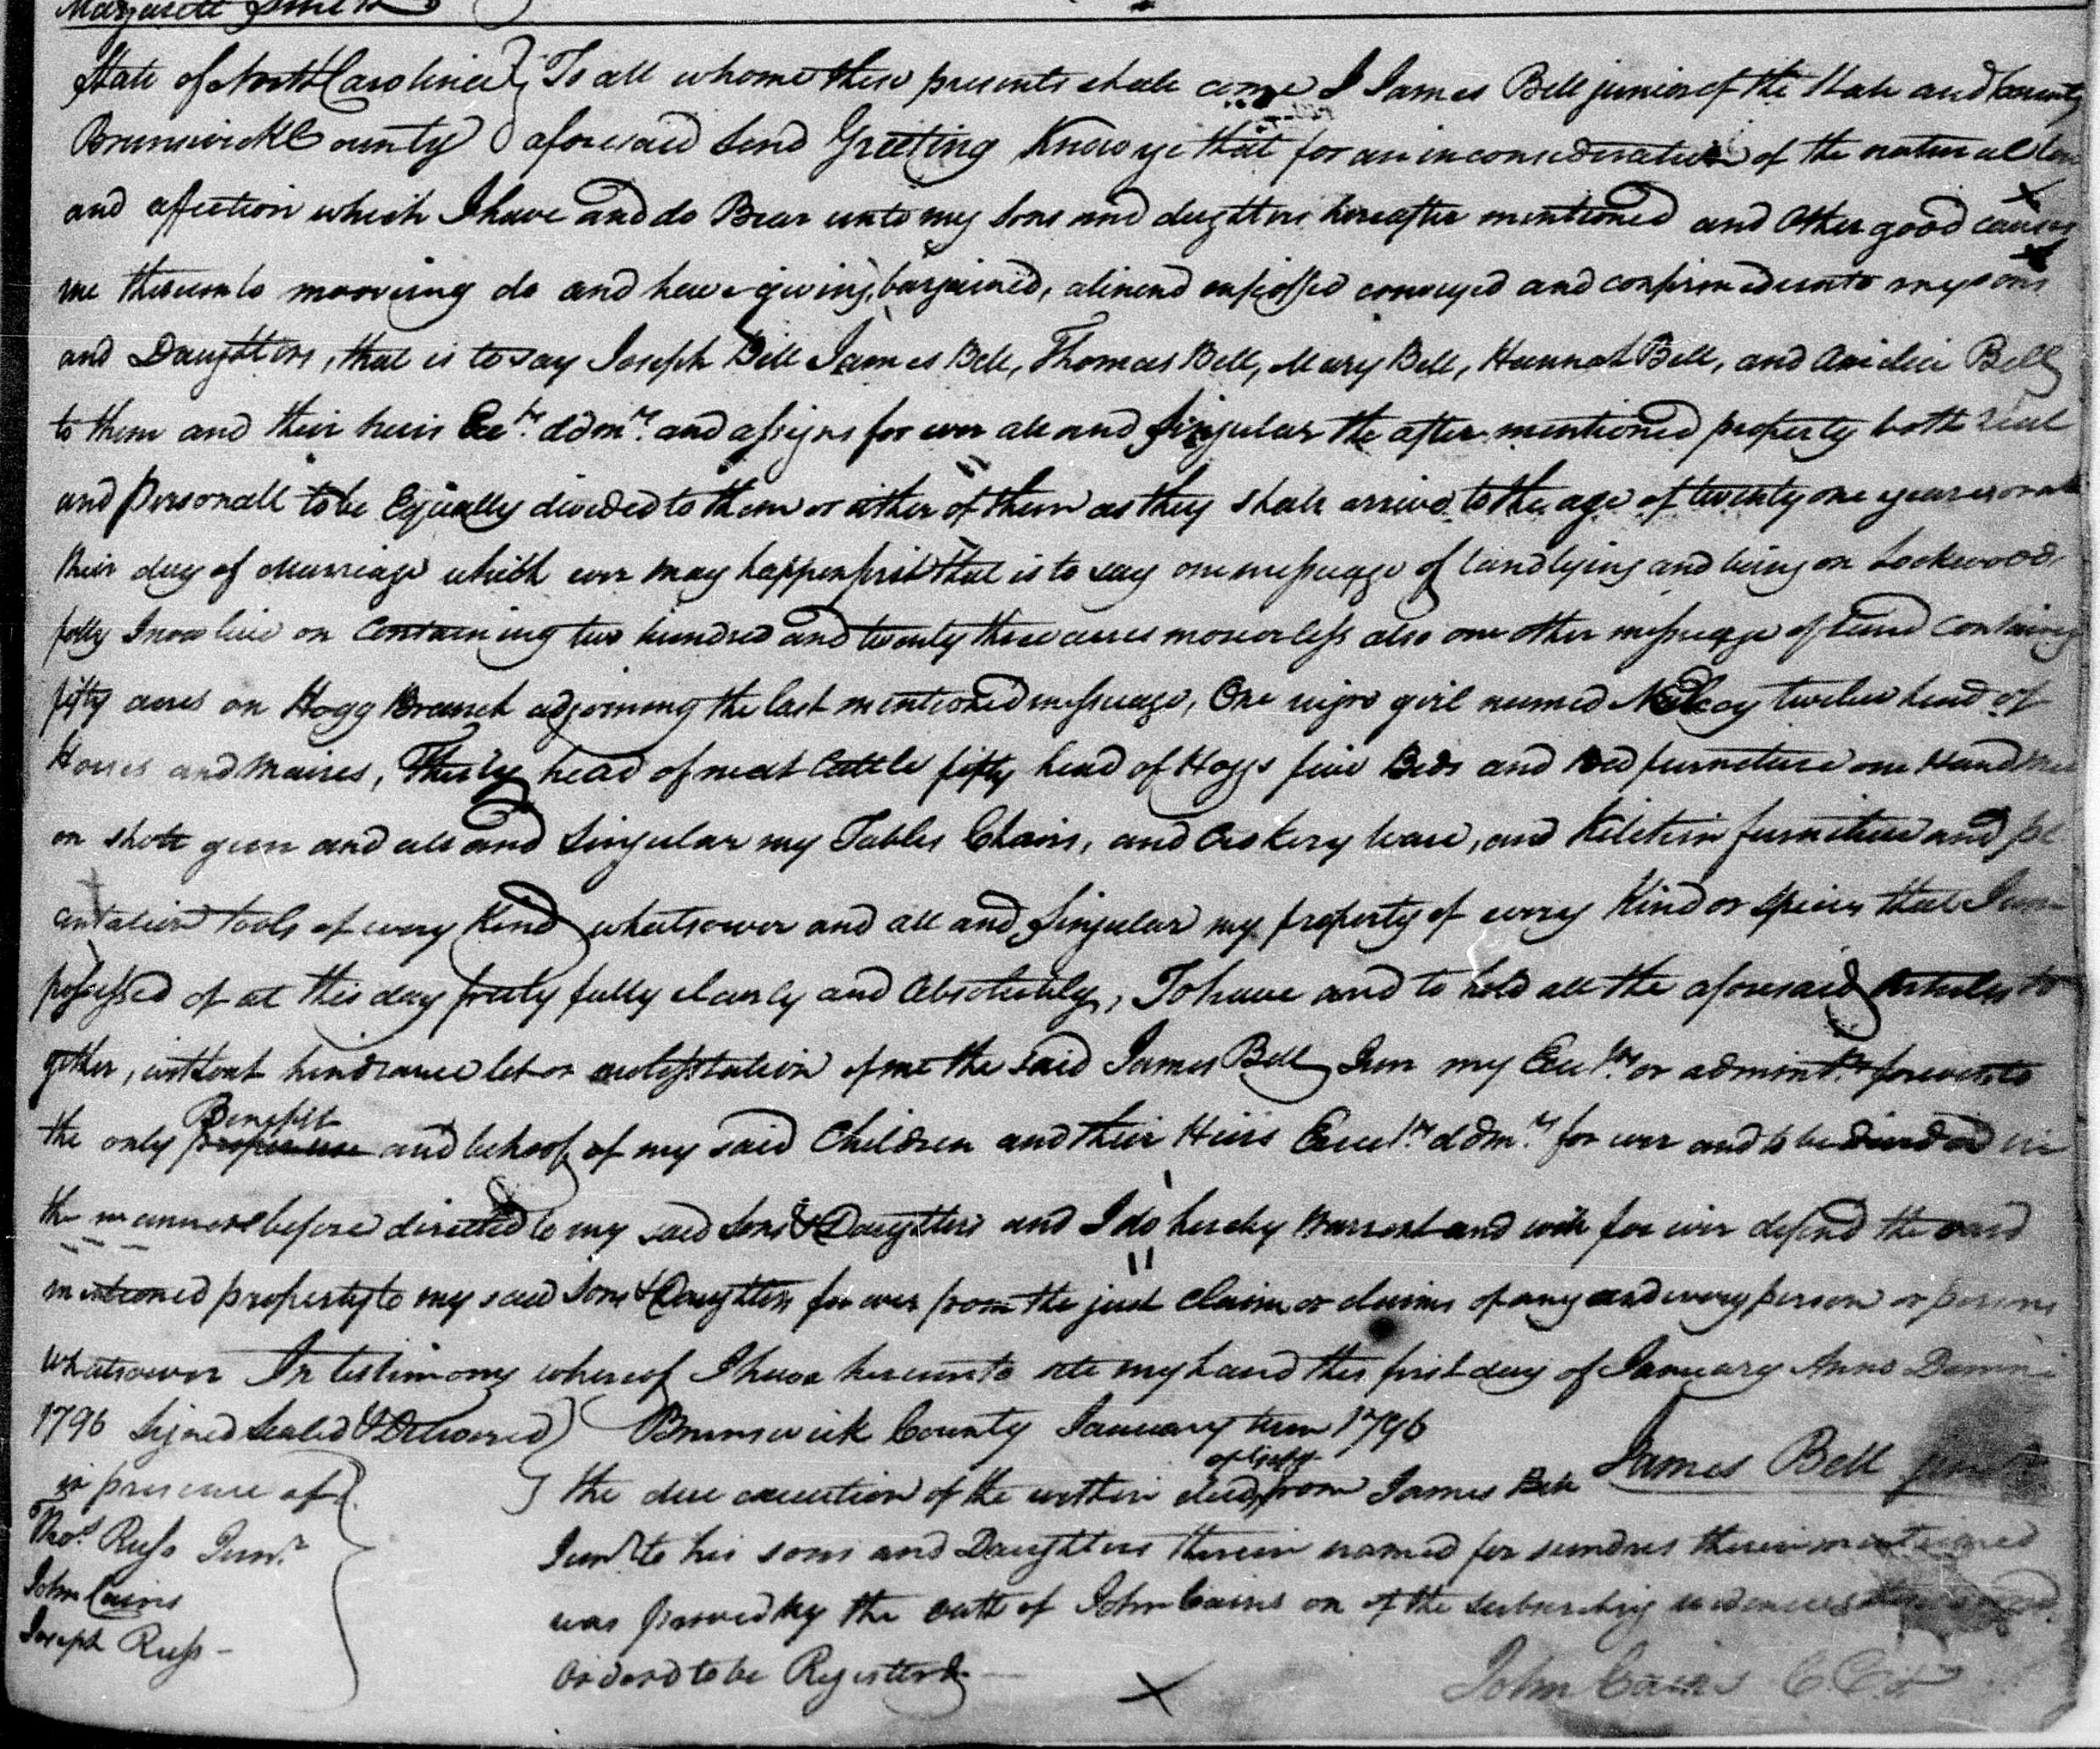 Margarett Smith
State of North Carolina } To all whome these presents shall come I James Bell junior of the State and County
Brunswick County } aforesaid Send Greeting Know ye that for an inconsideration of the natural love
and affection which I have and do Bear unto my Sons and daugtters hereafter mentioned and Other good causes
me thereunto mooving do and have giving, bargained, aliened enfeoffed conveyed and confirmed unto my sons
and Daugtters, that is to say Joseph Bell James Bell, Thomas Bell, Mary Bell, Hannah Bell, and Bell
to them and their heirs Exetrs. ddmrs. and assigns for ever all and Singular the after mentioned property both real
and personall to be Equally divided to them or either of them as they shall arrive to the age of twenty one years or at
their day of Marriage which ever may happen first that is to say one messuage of land lying and being on Lockwoods
folly I now live on Containing two hundred and twenty three acres more or less also one other messuage of Land Containing
fifty acres on Hogg Branch adjoining the last mentioned messuage, One nigro girl named twelve head of
Horses and Maires, Thirty head of neat Cattle fifty head of Hoggs five Beds and Bed furnetuire one Hand Mill
on shott gun and all and Singular my Tables Chairs, and Crokery ware, and Kitchin furniture and pl
antation tools of every Kind whatsoever and all and Singular my property of every Kind or Spicies that I am
possessed of at this day freely fully clearly and Absolutely, To have and to hold all the aforesaid Articles to
gether, without hindrance let or molesstation of me the said James Bell Junr my Exetrs. or admintrs. forever to
the only proper use Benefit and behoof of my said Children and their Heirs Execetrs. ddmrs. for ever and to be divided in
the mannere before directed to my said Sons & Daugtters and I do hereby Warrent and will for ever defend the
mentioned property to my said Sons & Daugtters for ever from the just claim or claims of any and every person or persons
whatsoever In testimony whereof I have hereunto sete my hand this first day of January Anno Domini
1796 Signed Sealed & Delivered } Brunswick County January term 1796
in presence of } the due execution of the within deed of Gift from James Bell James Bell junr
Thos. Russ Junr. Junr. to his sons and Daugtters therein named for sundres therein mentioned
John Cains was proved by the oath of John Cains on of the Subscribing
Joseph Russ - Orderd to be Registered
John Cains C.Ct